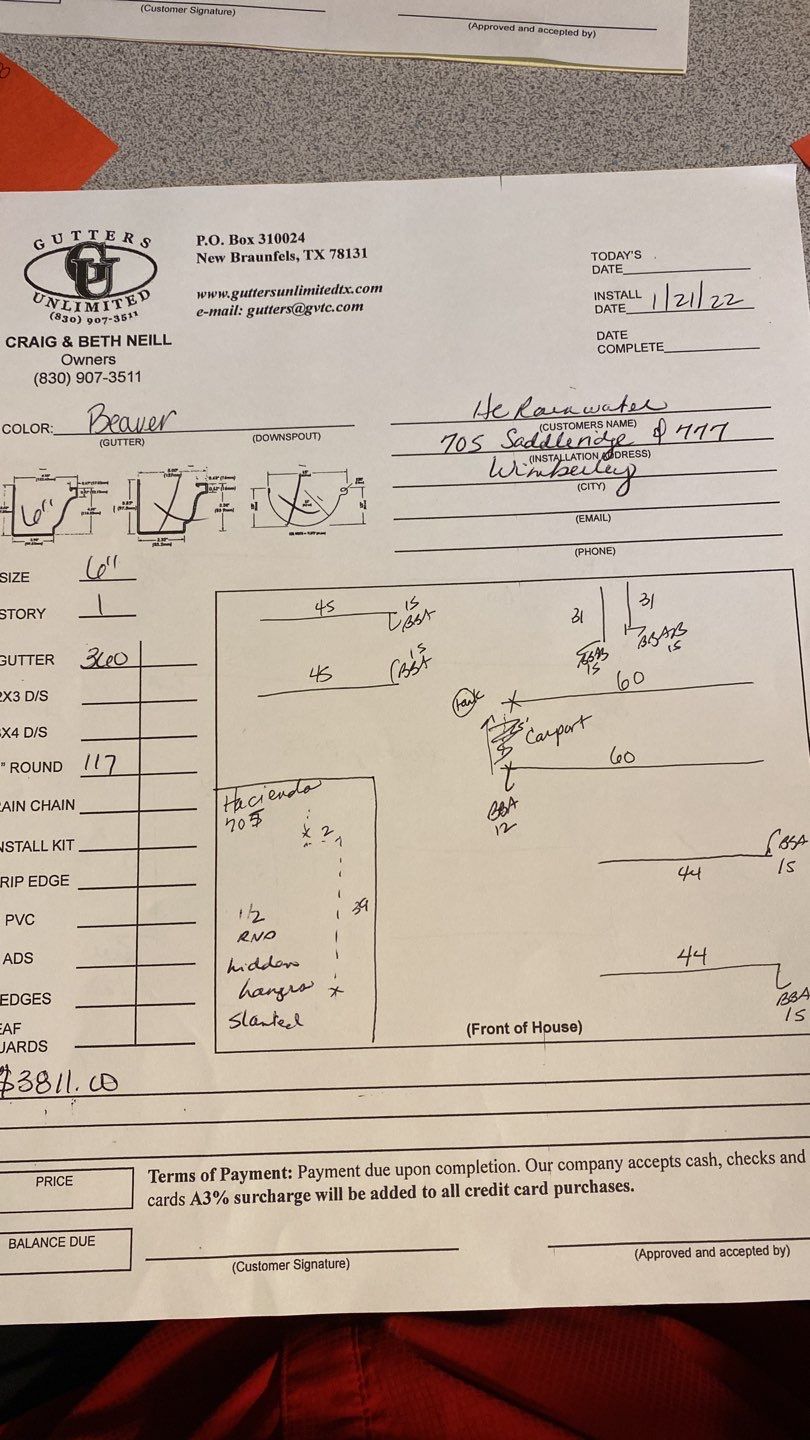 (Customer Signature)
(Approved and accepted by)
GUTTERS
GU
UNLIMITED
(830) 907-3511
P.O. Box 310024
New Braunfels, TX 78131
www.guttersunlimitedtx.com
e-mail: gutters@gvtc.com
CRAIG & BETH NEILL
Owners
(830) 907-3511
TODAY'S
DATE
INSTALL
DATE 1/21/22
DATE
COMPLETE
COLOR: Beaver
(GUTTER)
(DOWNSPOUT)
HC Rainwater
(CUSTOMERS NAME)
705 Saddleridge & 777
(INSTALLATION ADDRESS)
Wimberley
(CITY)
(EMAIL)
(PHONE)
6"
SIZE 6"
STORY 1
GUTTER 360
2X3 D/S
X4 D/S
" ROUND 117
AIN CHAIN
NSTALL KIT
RIP EDGE
PVC
ADS
EDGES
EAF
UARDS
45
15
BBA
45
15
BBA
31
31
BBAB
15
15
60
tank
Carport
60
BBA
12
BBA
15
44
44
BBA
15
Hacienda
705
x 2
39
1/2
RND
hidden
hangrs
Slanted
(Front of House)
$3811.00
PRICE
Terms of Payment: Payment due upon completion. Our company accepts cash, checks and
cards A3% surcharge will be added to all credit card purchases.
BALANCE DUE
(Customer Signature)
(Approved and accepted by)